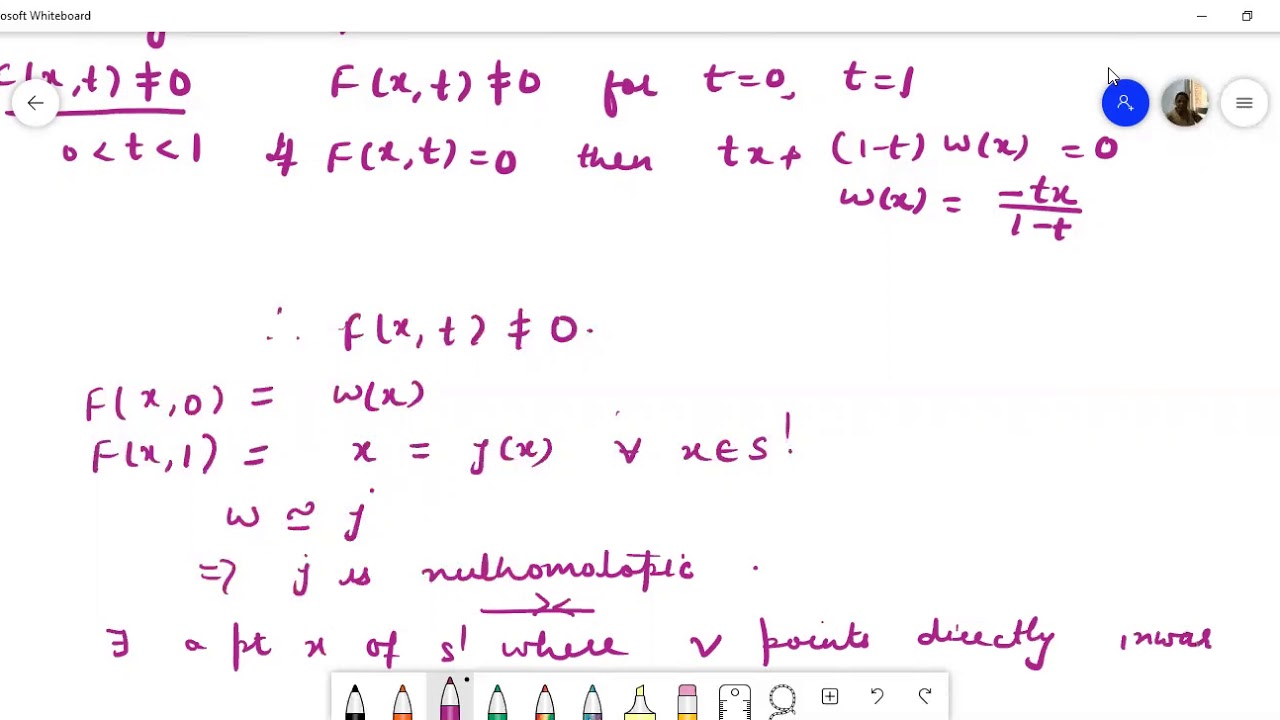 osoft Whiteboard
F(x,t) ≠ 0 F(x,t) ≠ 0 for t=0, t=1
0 < t < 1 If F(x,t) = 0 then tx + (1-t) w(x) = 0
w(x) = -tx / 1-t
∴ F(x,t) ≠ 0.
F(x,0) = w(x)
F(x,1) = x = j(x) ∀ x ∈ S¹
w ≃ j
⇒ j is nulhomotopic.
∃ a pt x of S¹ where v points directly inwar